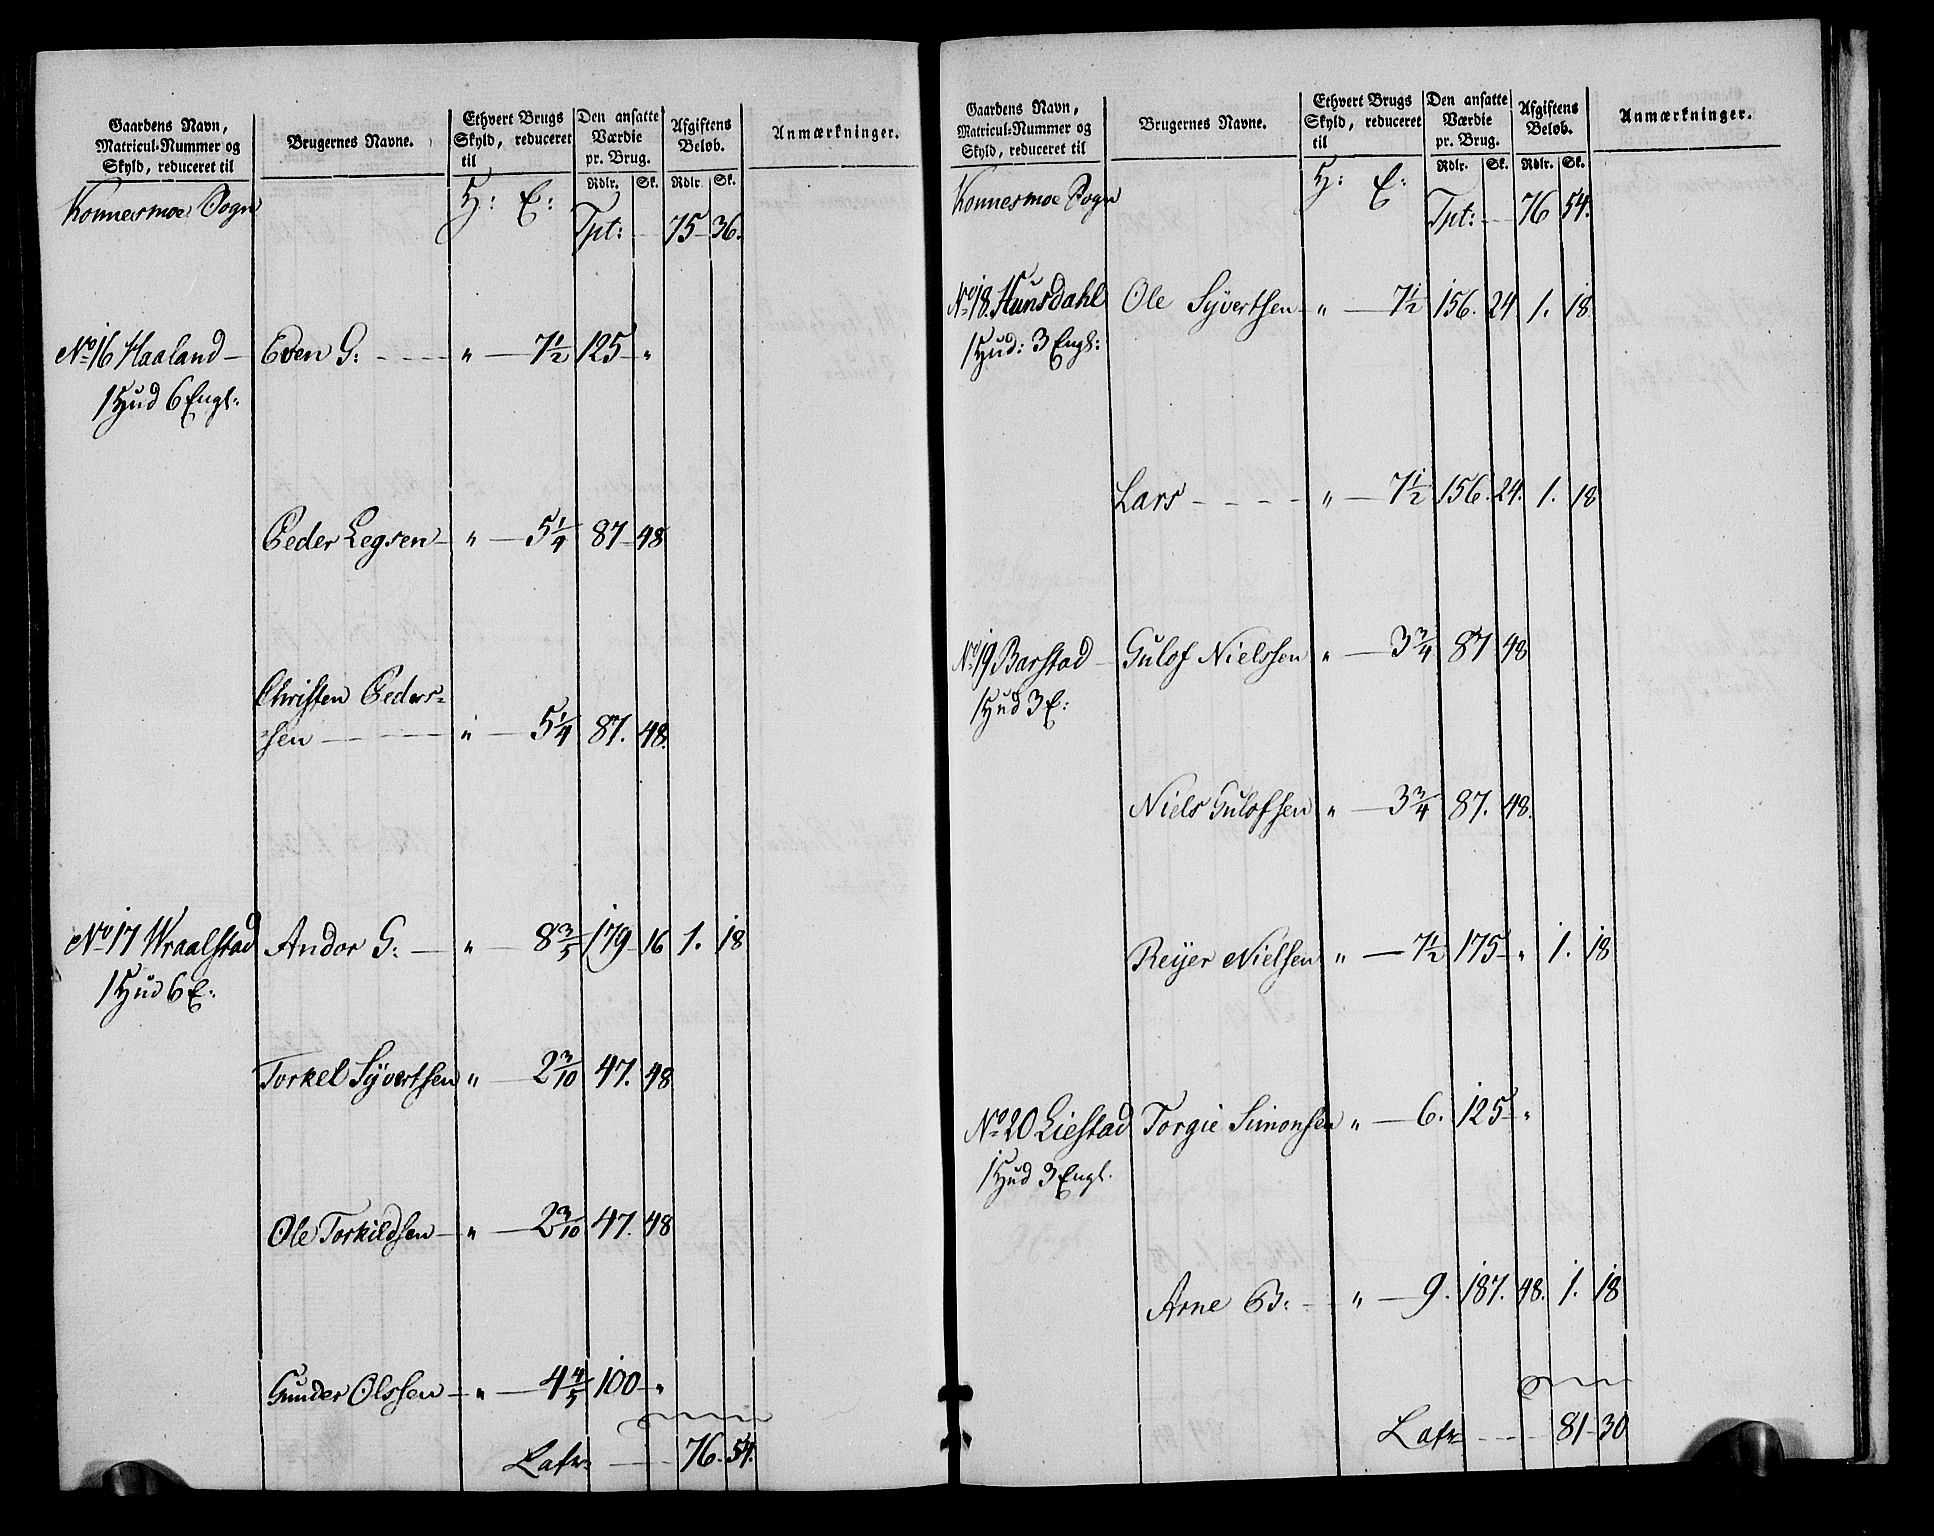 Gaardens Navn, Matricul-Nummer og Skyld, reduceret til | Brugernes Navne. | Ethvert Brugs Skyld, reduceret til | Den ansatte Værdie pr. Brug. Rdlr. Sk. | Afgiftens Beløb. Rdlr. Sk. | Anmærkninger.
Konnesmoe Sogn H: E: Tpt: - 75 - 36.
No 16 Haaland — Even G: - - - - „ — 7 1/2 125 - „
1 Hud 6 Engl:
Peder Legsen - „ — 5 1/4 87 - 48
Christen Peders-
sen - - - - „ — 5 1/4 87. 48.
No 17 Wraalstad Andor G: — „ — 8 3/5 179 16 1. 18
1 Hud 6 E:
Torkel Syvertsen „ — 2 3/10 47. 48
Ole Torkildsen — „ — 2 3/10 47. 48
Gunder Olssen — „ — 4 4/5 100 - „
Latr: - - - 76. 54.
Gaardens Navn, Matricul-Nummer og Skyld, reduceret til | Brugernes Navne. | Ethvert Brugs Skyld, reduceret til | Den ansatte Værdie pr. Brug. Rdlr. Sk. | Afgiftens Beløb. Rdlr. Sk. | Anmærkninger.
Konnesmoe Sogn H: E: Tpt: - - 76 54.
No 18. Hunsdahl Ole Syvertsen - „ — 7 1/2 156. 24 1. 18
1 Hud: 3 Engl:
Lars - - - - - „ — 7 1/2 156. 24. 1. 18
No 19 Barstad - Gulof Nielssen „ — 3 3/4 87 48
1 Hud 3 E:
Niels Gulofsen „ — 3 3/4 87. 48.
Reyer Nielsen „ — 7 1/2 175 - „ 1. 18
No 20 Liestad Torgie Simonsen „ — 6. 125 - „
1 Hud 3 Engl.
Arne B: - - „ — 9. 187. 48. 1. 18
Latr: - - - - 81 - 30